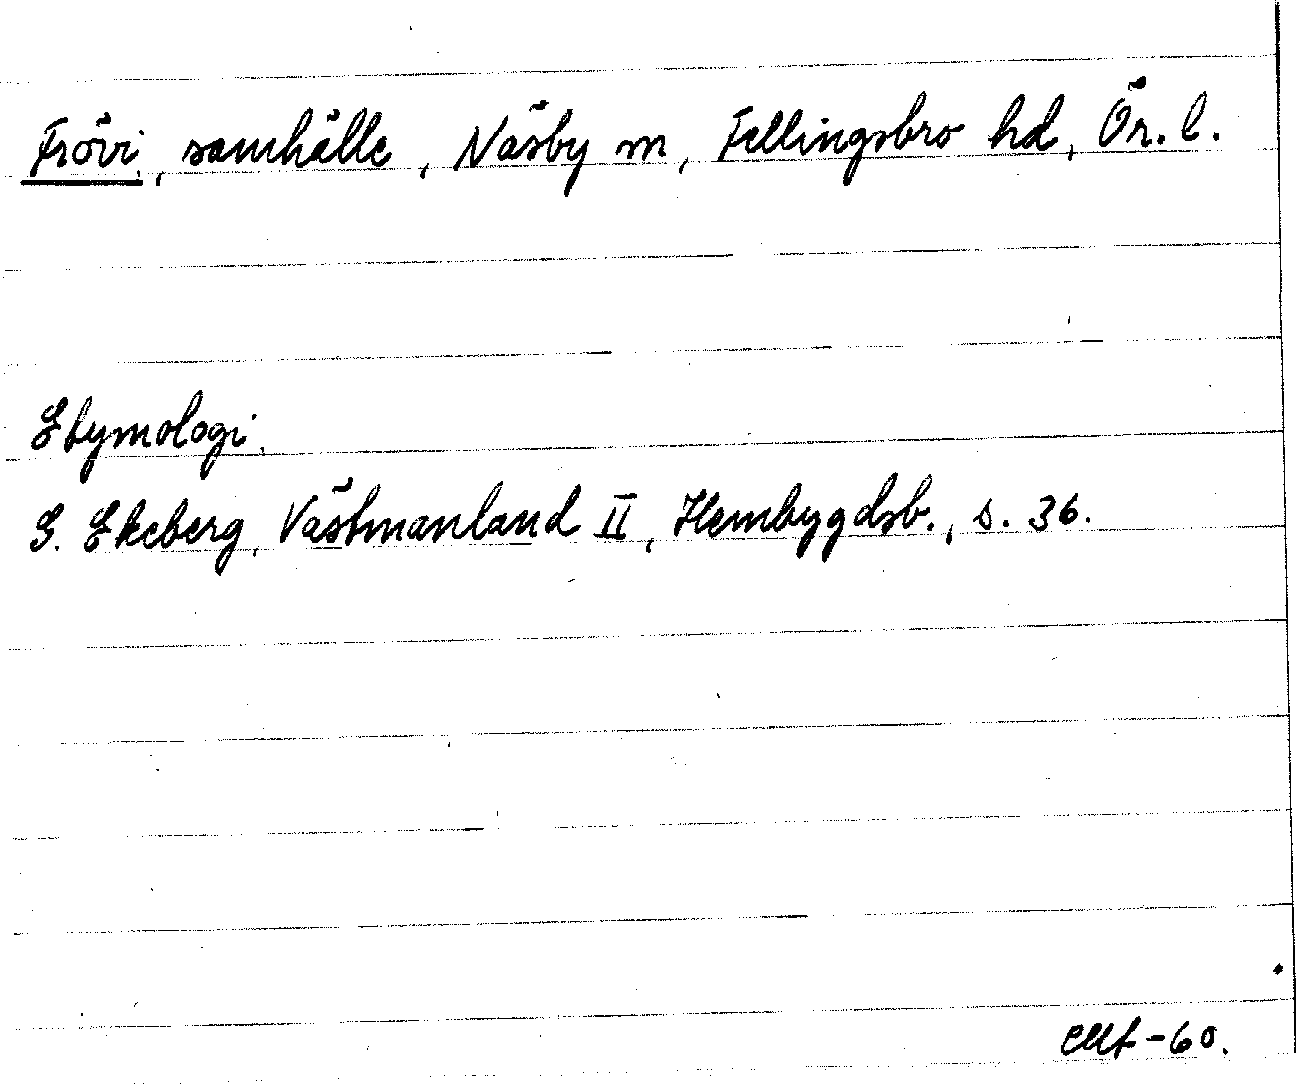 Frövi, samhälle, Näsby sn, Fellingsbro hd, Ör. l.
Etymologi.
G. Ekeberg, Västmanland II, Hembygdsb., s. 36.
-60.